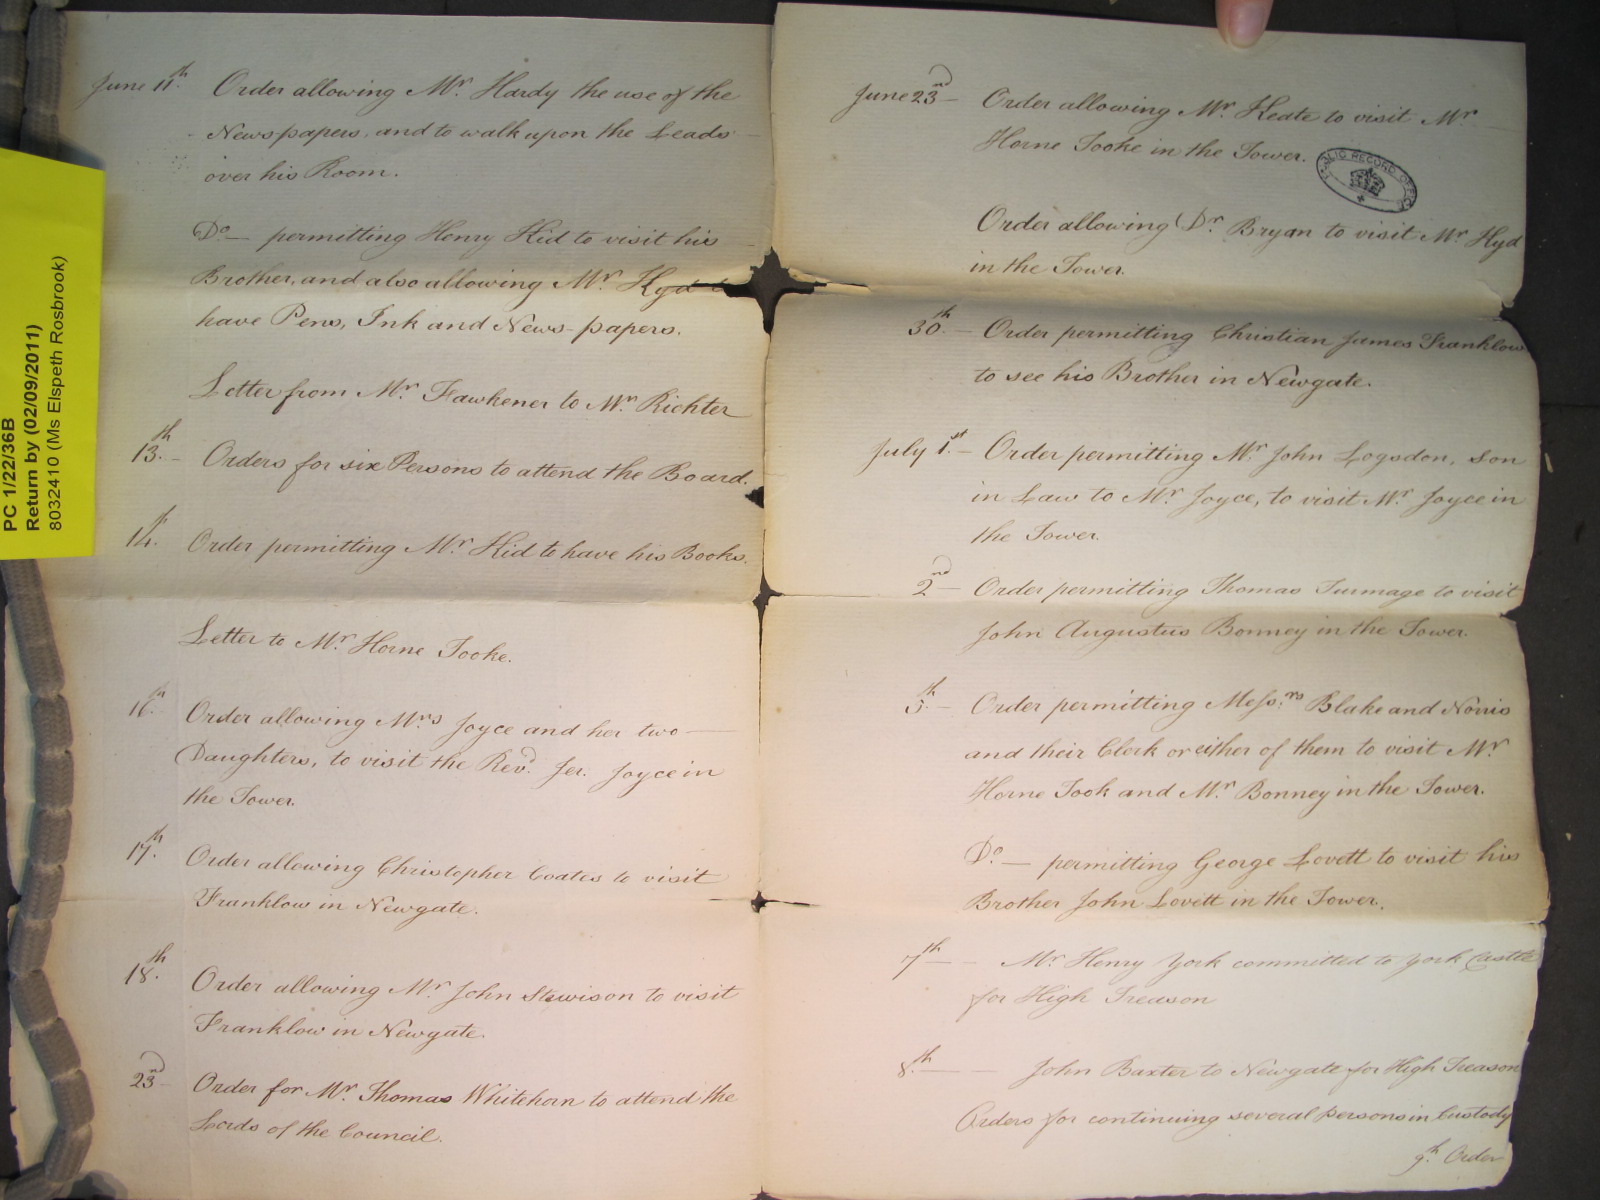 PC 1/22/36B
Return by (02/09/2011)
8032410 (Ms Elspeth Rosbrook)
June 11th. Order allowing Mr. Hardy the use of the
Newspapers, and to walk upon the Leads
over his Room.
Do — permitting Henry Kid to visit his
Brother, and also allowing Mr. Kyd
have Pens, Ink and News-papers.
Letter from Mr. Fawkener to Mr. Richter
13th. - Orders for six Persons to attend the Board.
14th. Order permitting Mr. Kid to have his Books.
Letter to Mr. Horne Tooke.
16th. Order allowing Mrs Joyce and her two
Daughters, to visit the Revd. Jer. Joyce in
the Tower.
17th. Order allowing Christopher Coates to visit
Franklow in Newgate.
18th. Order allowing Mr. John Stewison to visit
Franklow in Newgate.
23rd Order for Mr. Thomas Whitehorn to attend the
Lords of the Council.
June 23rd — Order allowing Mr. Keate to visit Mr
Horne Tooke in the Tower.
PUBLIC RECORD OFFICE
Order allowing Dr. Bryan to visit Mr. Kyd
in the Tower.
30th. — Order permitting Christian James Franklow
to see his Brother in Newgate.
July 1st. — Order permitting Mr. John Logsdon, Son
in Law to Mr. Joyce, to visit Mr. Joyce in
the Tower.
2nd — Order permitting Thomas Turmage to visit
John Augustus Bonney in the Tower.
5th. — Order permitting Messrs. Blake and Norris
and their Clerk or either of them to visit Mr.
Horne Took and Mr. Bonney in the Tower.
Do. — permitting George Lovett to visit his
Brother John Lovett in the Tower.
7th — Mr. Henry York committed to York Castle
for High Treason
8th. — John Baxter to Newgate for High Treason
Orders for continuing several persons in Custody
9th. Order